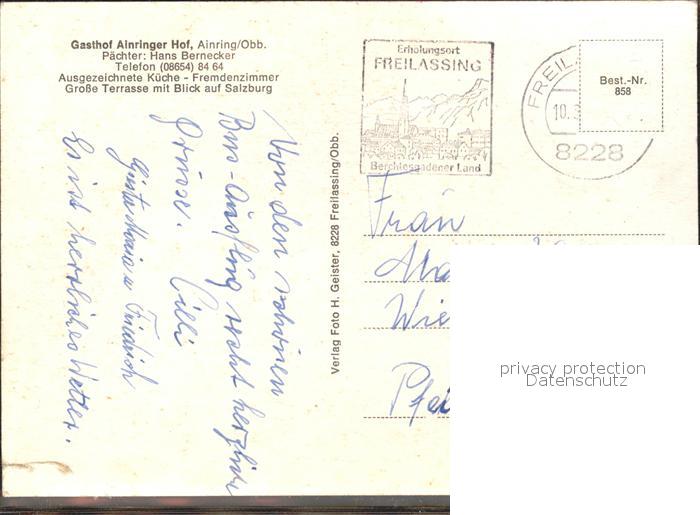 Gasthof Ainringer Hof, Ainring/Obb.
Pächter: Hans Bernecker
Telefon (08654) 84 64
Ausgezeichnete Küche - Fremdenzimmer
Große Terrasse mit Blick auf Salzburg
Von den schönen
Bus-Ausflug recht herzliche
Grüsse. Cilli
Maria u Friedrich
Es ist herrliches Wetter.
Verlag Foto H. Geister, 8228 Freilassing/Obb.
Erholungsort
FREILASSING
Berchtesgadener Land
FREIL
10.
8228
Best.-Nr.
858
Frau
Ma
Wie
Pfei
privacy protection
Datenschutz